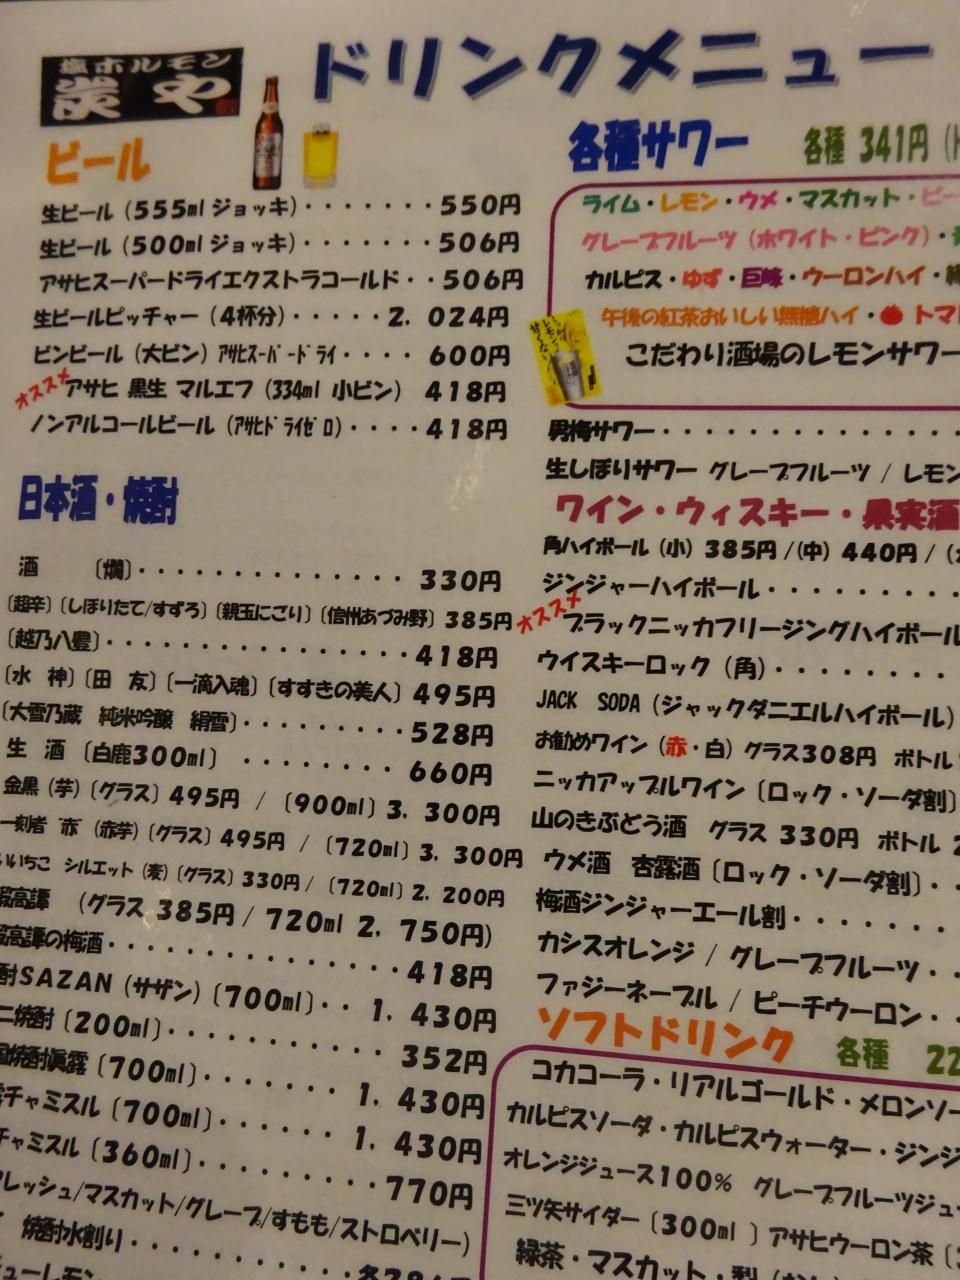 塩ホルモン
炭や
ドリンクメニュー
ビール
生ビール（555mlジョッキ）・・・・・・・550円
生ビール（500mlジョッキ）・・・・・・・506円
アサヒスーパードライエクストラコールド・・506円
生ビールピッチャー（4杯分）・・・・・2，024円
ビンビール（大ビン）ｱｻﾋｽｰﾊﾟｰﾄﾞﾗｲ・・・・600円
オススメ アサヒ 黒生 マルエフ（334ml 小ビン） 418円
ノンアルコールビール（ｱｻﾋﾄﾞﾗｲｾﾞﾛ）・・・・418円
日本酒・焼酎
酒 〔燗〕・・・・・・・・・・・・・・ 330円
〔超辛〕〔しぼりたて/すずろ〕〔親玉にごり〕〔信州あづみ野〕385円
〔越乃八豊〕・・・・・・・・・・・・・・・・418円
〔水 神〕〔田 友〕〔一滴入魂〕〔すすきの美人〕495円
〔大雪乃蔵 純米吟醸 絹雪〕・・・・・・・・528円
生 酒 〔白鹿300ml〕 ・・・・・・・・660円
金黒（芋）〔グラス〕495円 / 〔900ml〕3，300円
一刻者 赤 （赤芋）〔グラス〕495円 / 〔720ml〕3，300円
いいちこ シルエット（麦）〔グラス〕330円 / 〔720ml〕2，200円
鍛高譚 （グラス 385円 / 720ml 2，750円）
鍛高譚の梅酒・・・・・・・・・・・・・418円
酎SAZAN（サザン）〔700ml〕・・ 1，430円
焼酎〔200ml〕・・・・・・・・・・ 352円
焼酎眞露〔700ml〕・・・・・・・ 1，430円
チャミスル〔700ml〕・・・・・・ 1，430円
チャミスル〔360ml〕・・・・・・・・770円
レッシュ/マスカット/グレープ/すもも/ストロベリー）
焼酎水割り・・・・・・・・・・
各種サワー 各種 341円
ライム・レモン・ウメ・マスカット・ピー
グレープフルーツ（ホワイト・ピンク）・
カルピス・ゆず・巨峰・ウーロンハイ・
午後の紅茶おいしい無糖ハイ・トマ
こだわり酒場のレモンサワー
男梅サワー・・・・・・・・・・・・・・
生しぼりサワー グレープフルーツ / レモン
ワイン・ウィスキー・果実酒
角ハイボール（小）385円 /（中）440円 /（
ジンジャーハイボール・・・・・・・・・
オススメ ブラックニッカフリージングハイボール
ウイスキーロック（角）・・・・・・・・
JACK SODA（ジャックダニエルハイボール）
お勧めワイン（赤・白）グラス308円 ボトル
ニッカアップルワイン〔ロック・ソーダ割〕
山のきぶどう酒 グラス 330円 ボトル 2
ウメ酒 杏露酒〔ロック・ソーダ割〕・・
梅酒ジンジャーエール割・・・・・・・
カシスオレンジ / グレープフルーツ・・
ファジーネーブル / ピーチウーロン・・
ソフトドリンク 各種 22
コカコーラ・リアルゴールド・メロンソー
カルピスソーダ・カルピスウォーター・ジンジ
オレンジジュース100% グレープフルーツジュ
三ツ矢サイダー〔300ml 〕アサヒウーロン茶〔
緑茶・マスカット・梨